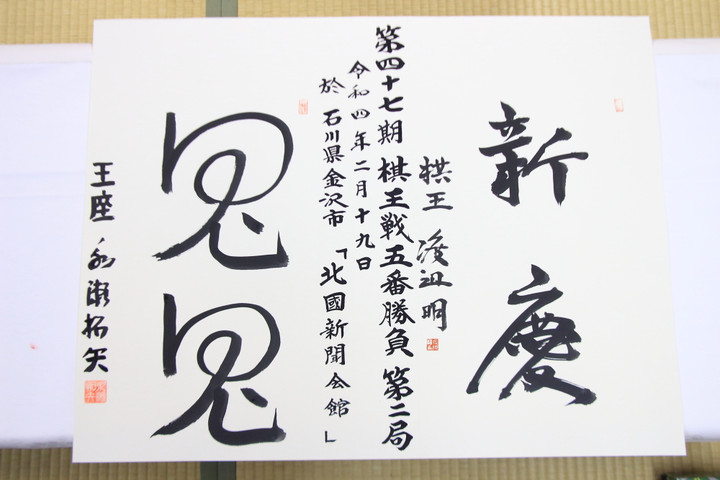 新慶
棋王 渡辺明
第四十七期棋王戦五番勝負第二局
令和四年二月十九日
於 石川県金沢市「北國新聞会館」
鬼鬼
王座 永瀬拓矢